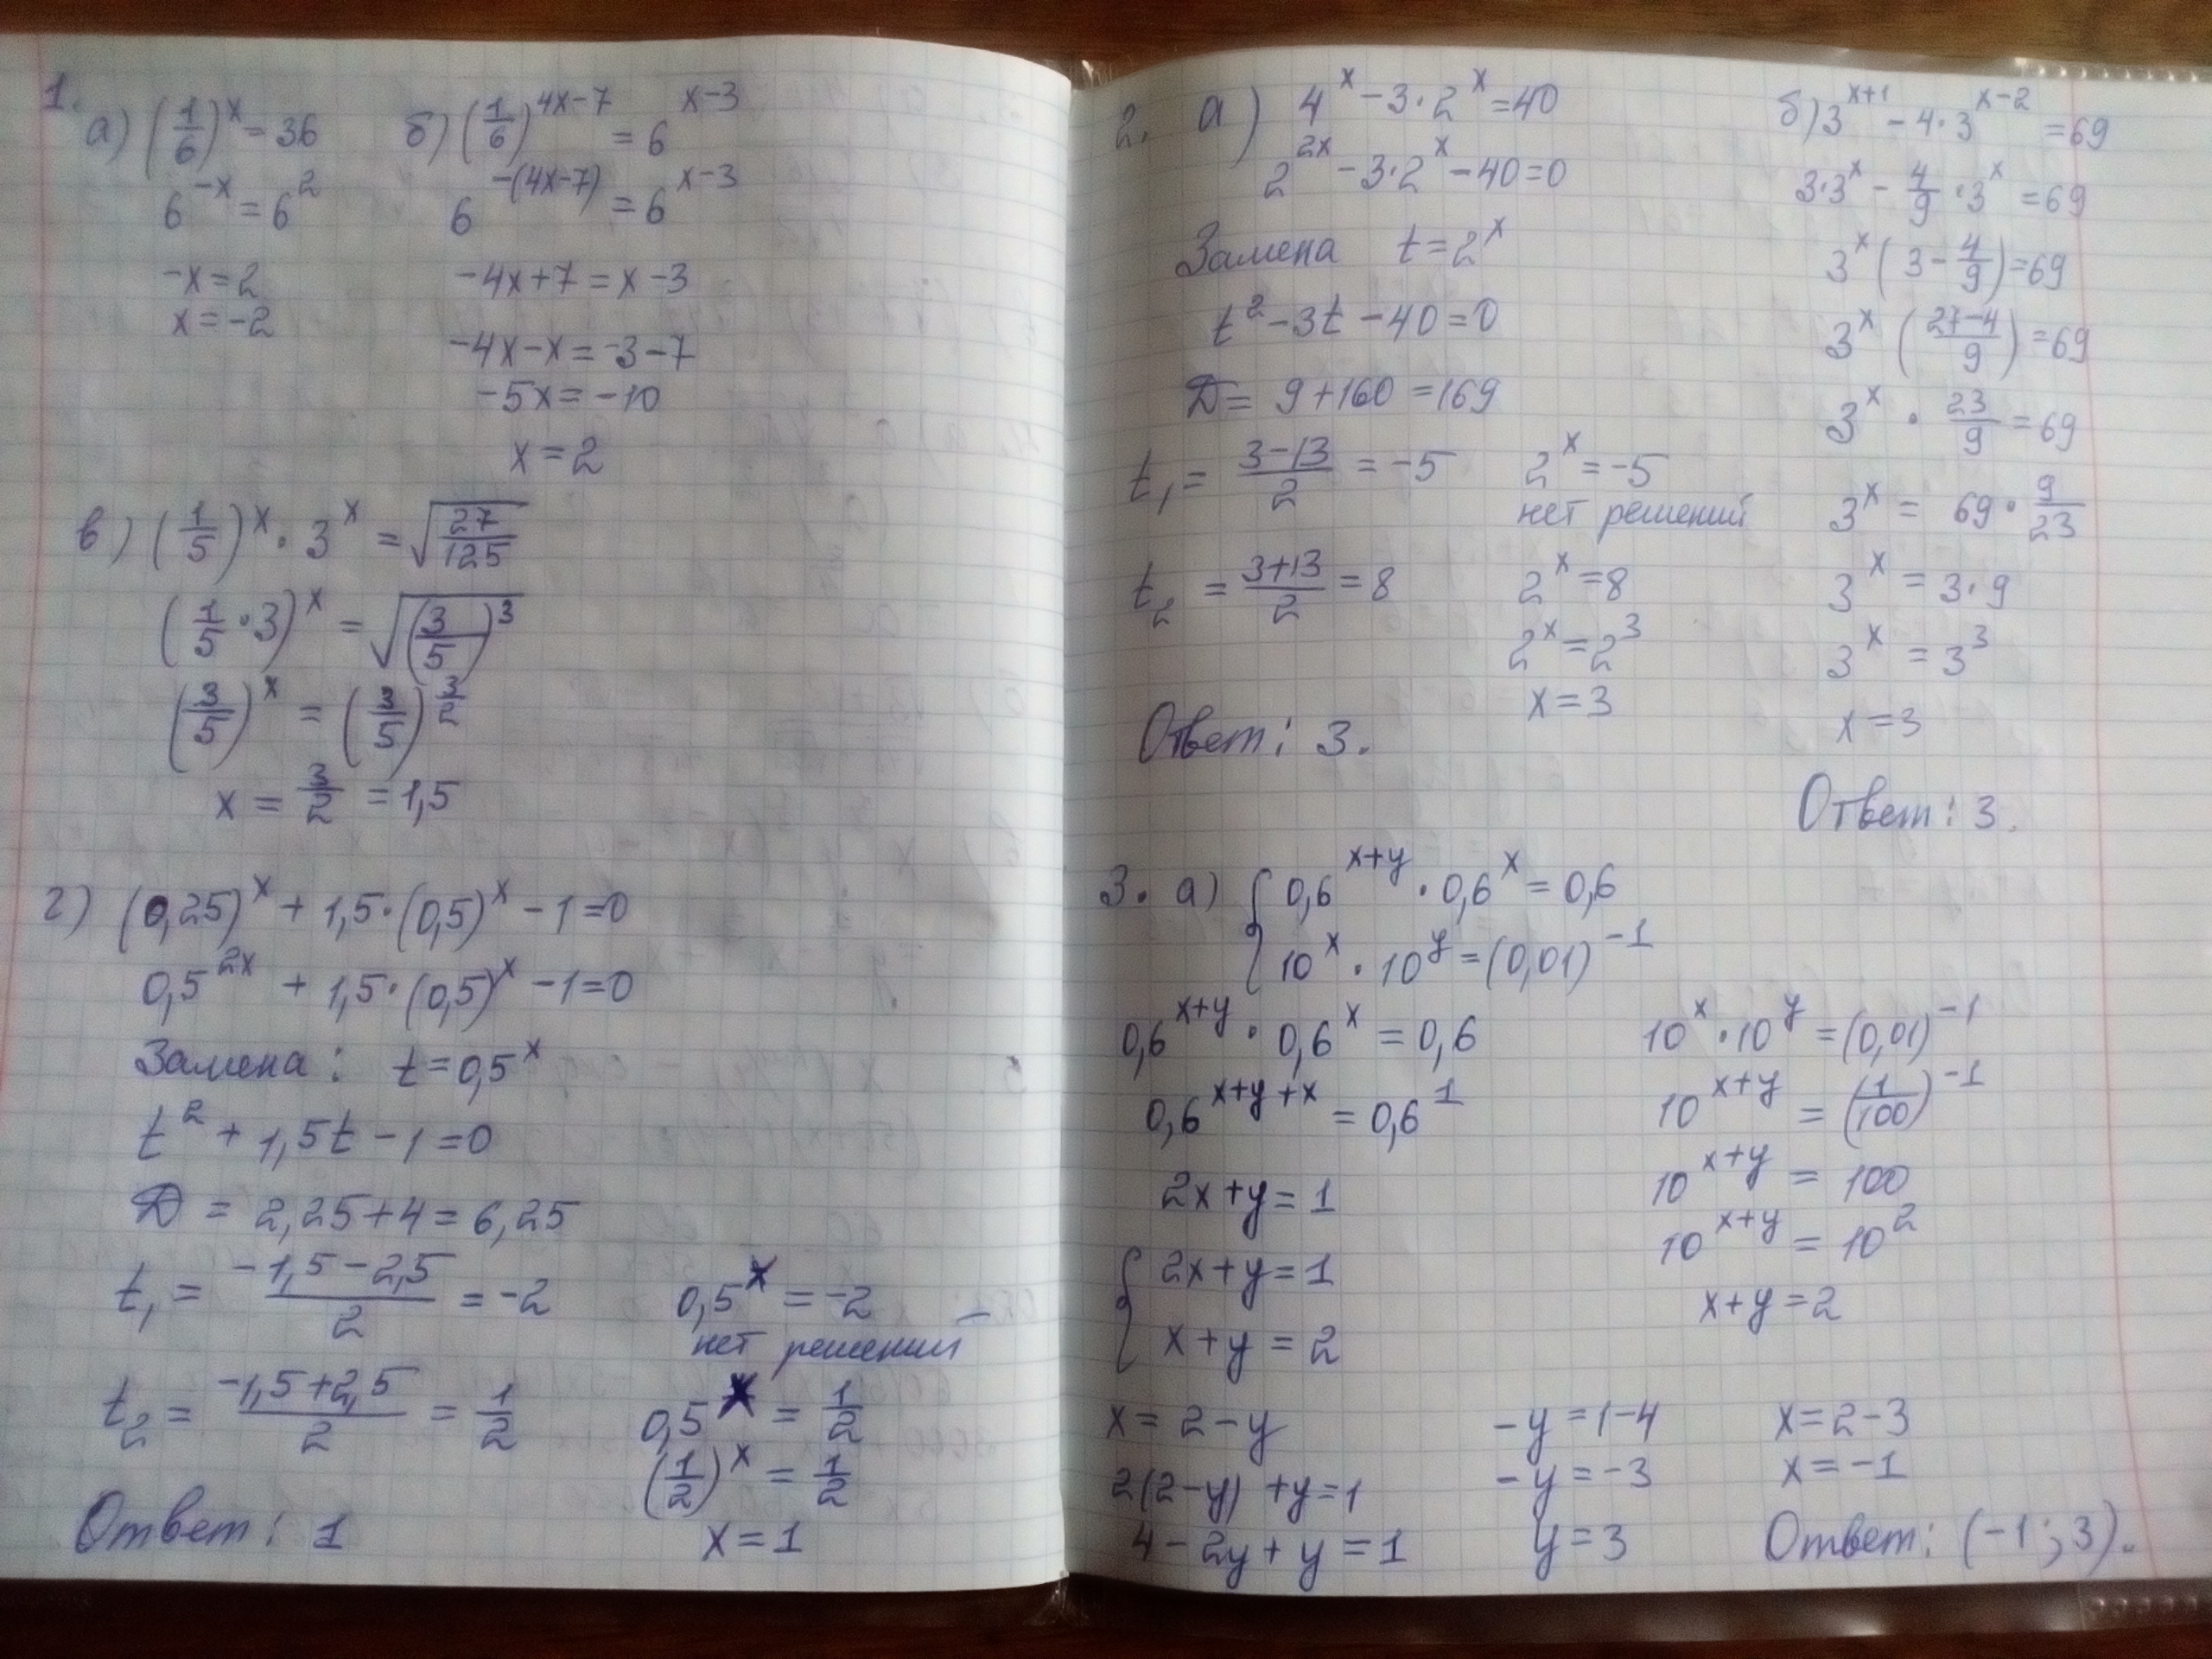 1.
а) (1/6)^x = 36
6^(-x) = 6^2
-x = 2
x = -2
б) (1/6)^(4x-7) = 6^(x-3)
6^(-(4x-7)) = 6^(x-3)
-4x+7 = x-3
-4x-x = -3-7
-5x = -10
x = 2
в) (1/5)^x · 3^x = √(27/125)
(1/5 · 3)^x = √((3/5)^3)
(3/5)^x = (3/5)^(3/2)
x = 3/2 = 1,5
г) (0,25)^x + 1,5·(0,5)^x - 1 = 0
0,5^(2x) + 1,5·(0,5)^x - 1 = 0
Замена: t = 0,5^x
t^2 + 1,5t - 1 = 0
D = 2,25+4 = 6,25
t₁ = (-1,5-2,5)/2 = -2
0,5^x = -2
нет решений
t₂ = (-1,5+2,5)/2 = 1/2
0,5^x = 1/2
(1/2)^x = 1/2
x = 1
Ответ: 1
2. а) 4^x - 3·2^x = 40
2^(2x) - 3·2^x - 40 = 0
Замена t = 2^x
t^2 - 3t - 40 = 0
D = 9+160 = 169
t₁ = (3-13)/2 = -5
2^x = -5
нет решений
t₂ = (3+13)/2 = 8
2^x = 8
2^x = 2^3
x = 3
Ответ: 3.
б) 3^(x+1) - 4·3^(x-2) = 69
3·3^x - 4/9 · 3^x = 69
3^x (3 - 4/9) = 69
3^x ((27-4)/9) = 69
3^x · 23/9 = 69
3^x = 69 · 9/23
3^x = 3·9
3^x = 3^3
x = 3
Ответ: 3.
3. а) { 0,6^(x+y) · 0,6^x = 0,6
10^x · 10^y = (0,01)^(-1)
0,6^(x+y) · 0,6^x = 0,6
0,6^(x+y+x) = 0,6^1
2x+y = 1
10^x · 10^y = (0,01)^(-1)
10^(x+y) = (1/100)^(-1)
10^(x+y) = 100
10^(x+y) = 10^2
x+y = 2
{ 2x+y = 1
x+y = 2
x = 2-y
2(2-y) + y = 1
4-2y+y = 1
-y = 1-4
-y = -3
y = 3
x = 2-3
x = -1
Ответ: (-1; 3).